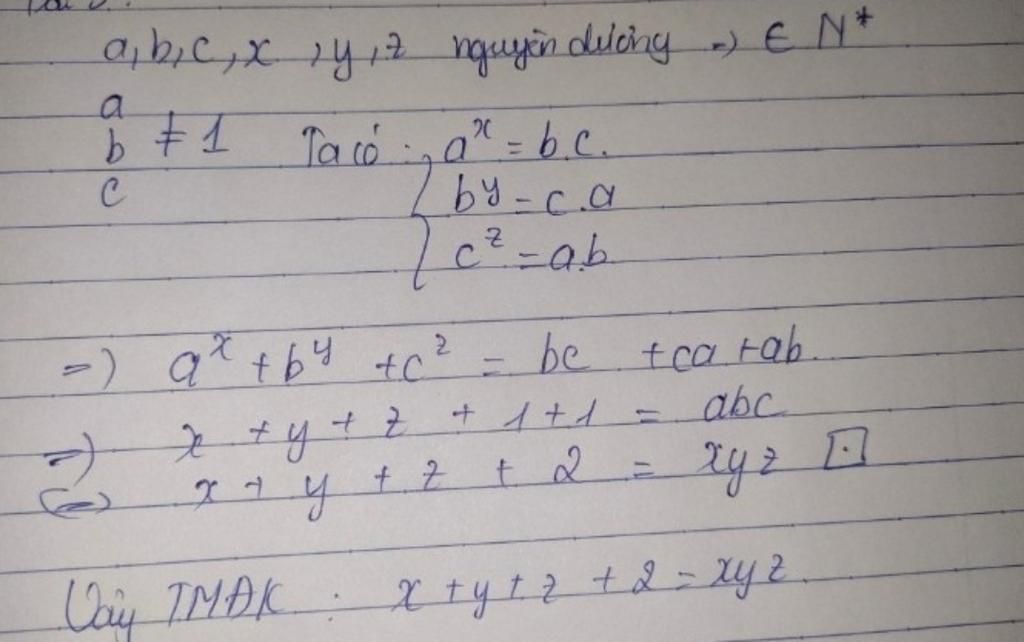 a, b, c, x, y, z nguyên dương => ∈ N*
a
b ≠ 1 Ta có: a^x = b.c.
c b^y = c.a
c^z = a.b
=> a^x + b^y + c^z = bc + ca + ab.
=> x + y + z + 1 + 1 = abc
<=> x + y + z + 2 = xyz ⊡
Vậy TMĐK : x + y + z + 2 = xyz